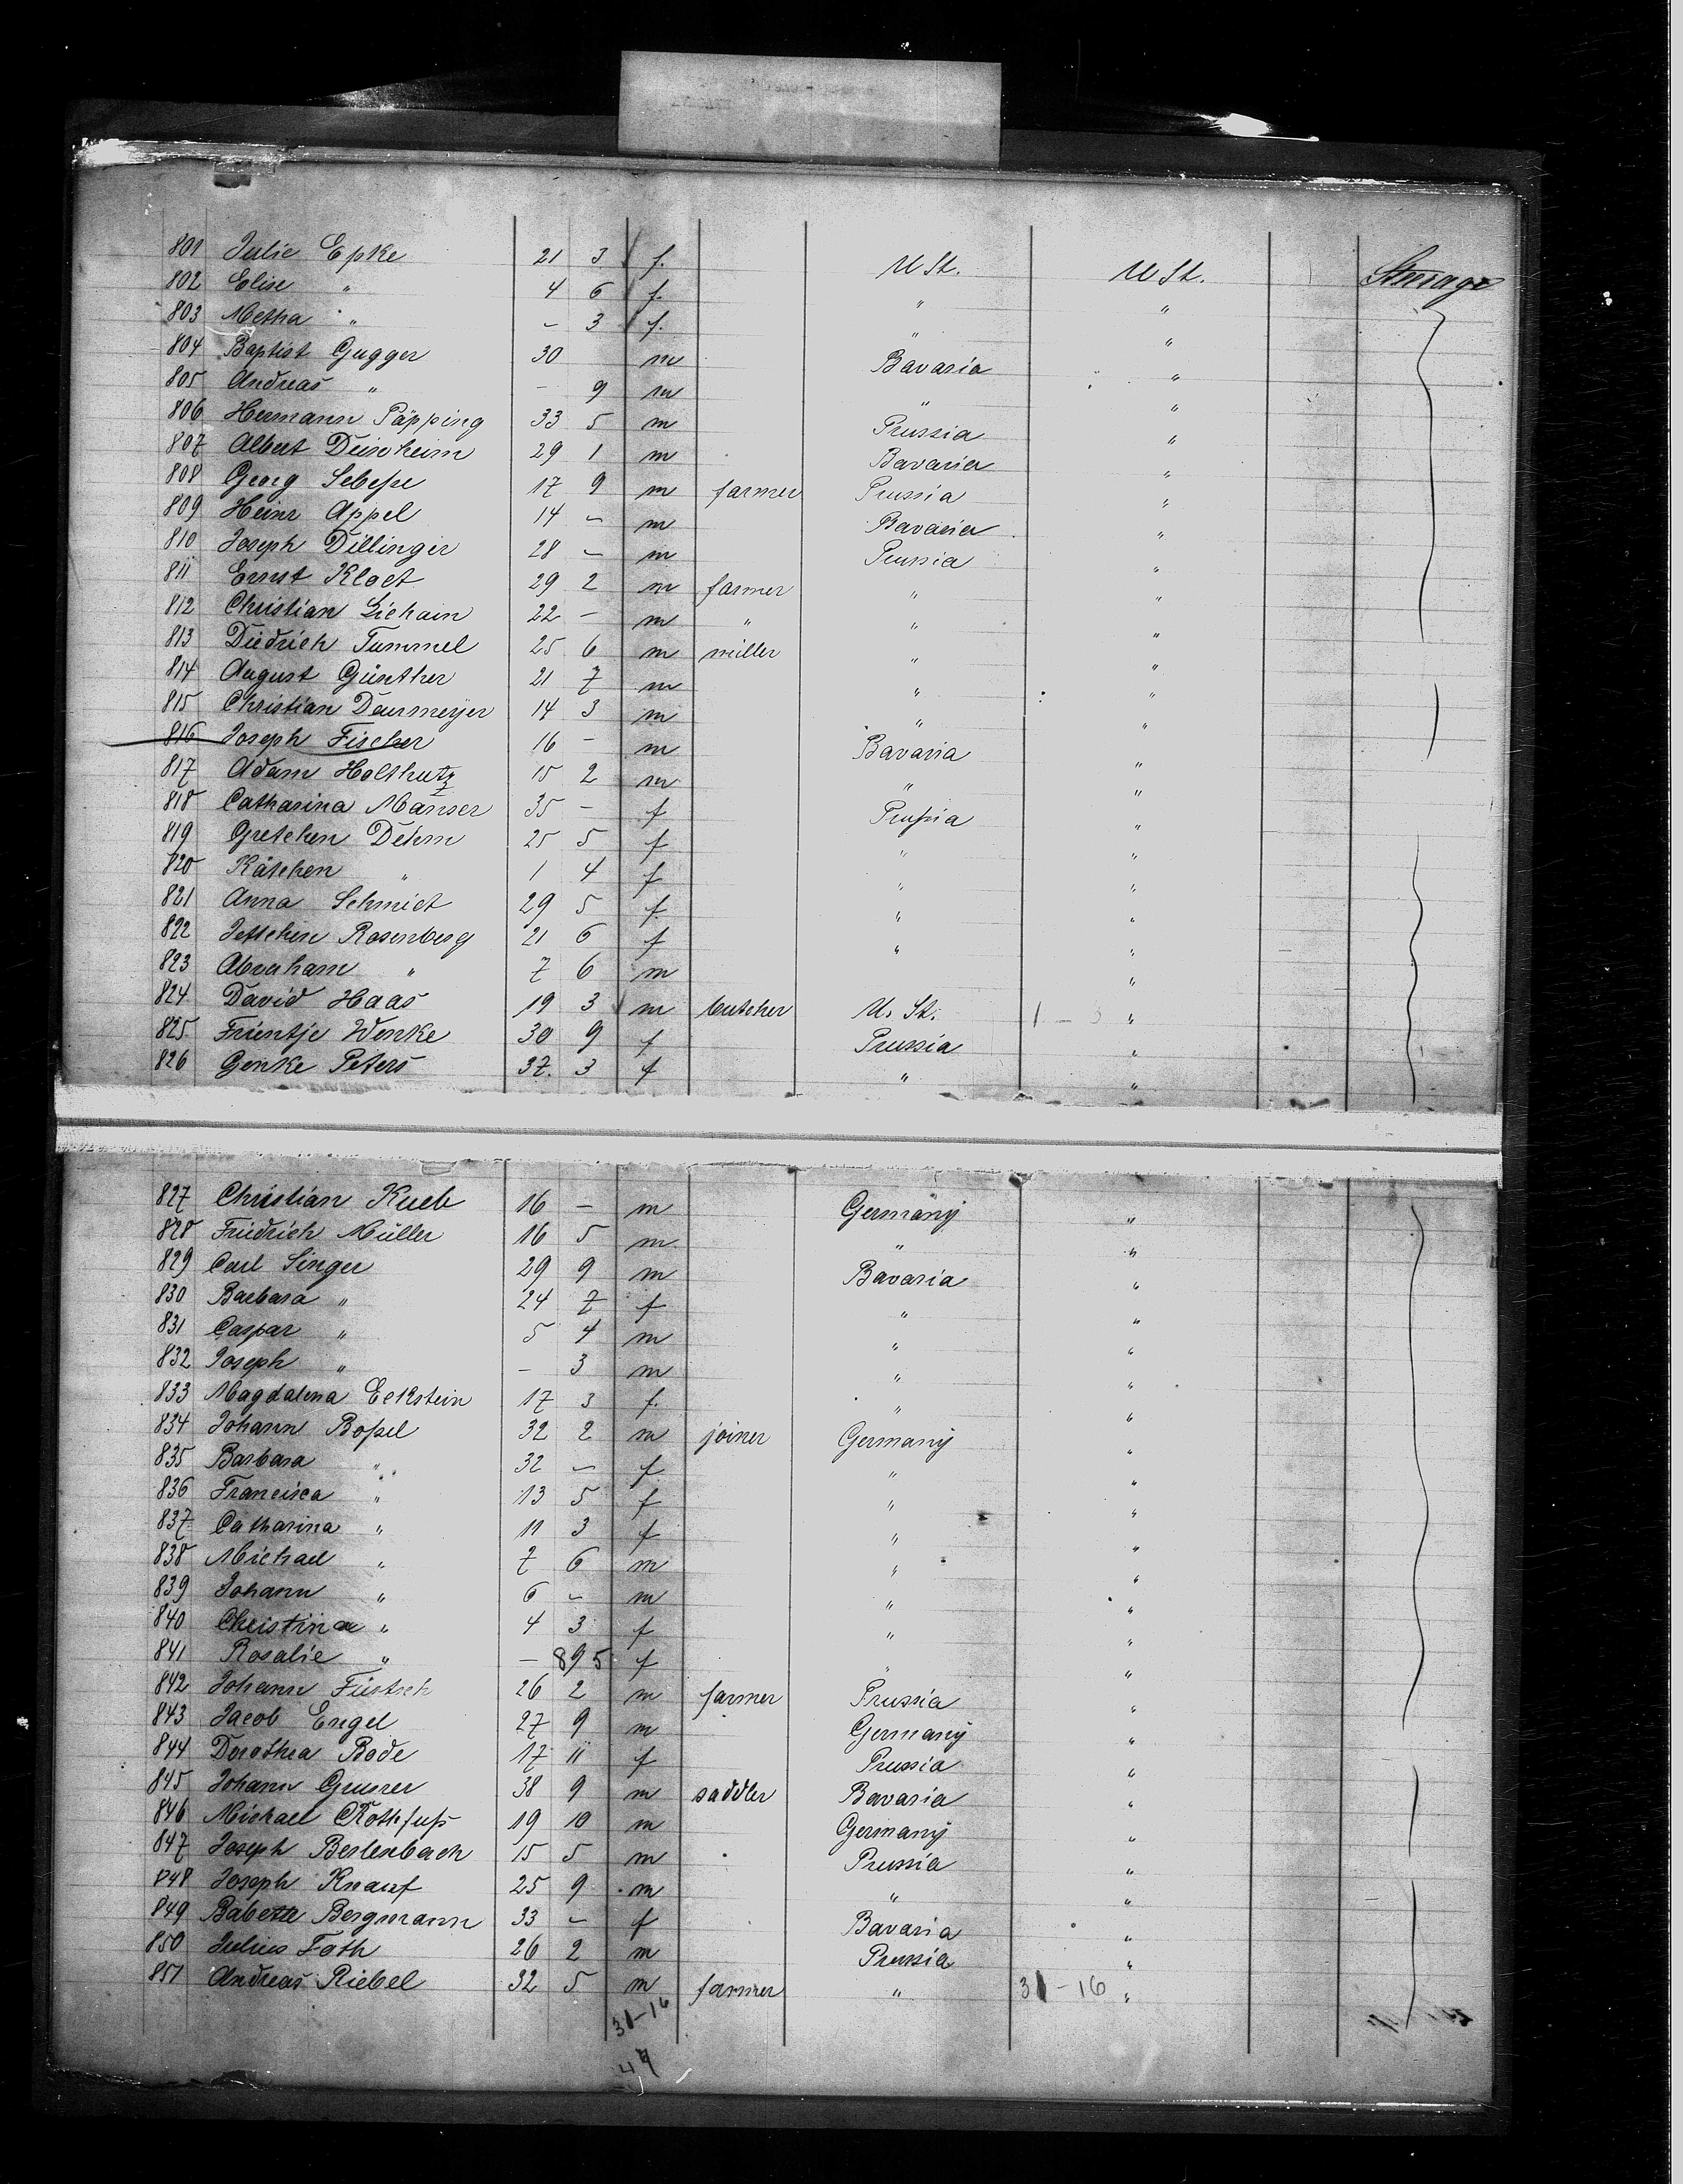 801 Julie Epke 21 3 f. U St. U St. Steerage
802 Elise " 4 6 f. " "
803 Metha " - 3 f. " "
804 Baptist Gugger 30 m Bavaria "
805 Andreas " - 9 m " "
806 Hermann Päpping 33 5 m Prussia "
807 Albert 29 1 m Bavaria "
808 Georg 17 9 m farmer Prussia "
809 Heinr Appel 14 - m Bavaria "
810 Joseph Dillinger 28 - m Prussia "
811 Ernst Kloet 29 2 m farmer " "
812 Christian Liehain 22 - m " " "
813 Diedrich Tummel 25 6 m miller " "
814 August Günther 21 7 m " "
815 Christian Daurmeyer 14 3 m " "
816 Joseph Fischer 16 - m Bavaria "
817 Adam Holthutz 15 2 m " "
818 Catharina Manser 35 - f Prussia "
819 Gretchen Dehm 25 5 f " "
820 Kätchen " 1 4 f " "
821 Anna Schmidt 29 5 f. " "
822 Jettchen Rosenberg 21 6 f " "
823 Abraham " 7 6 m "
824 David Haas 19 3 m butcher U. St. 1 - 3 "
825 Frientje Wenke 30 9 f Prussia "
826 Genke Peters 37. 3 f " "
827 Christian Kueb 16 - m Germany "
828 Friedrich Müller 16 5 m " "
829 Carl Singer 29 9 m Bavaria "
830 Barbara " 24 7 f " "
831 Caspar " 5 4 m " "
832 Joseph " - 3 m " "
833 Magdalena Eckstein 17 3 f. " "
834 Johann Boßel 32 2 m joiner Germany "
835 Barbara " 32 - f. " "
836 Francisca " 13 5 f " "
837 Catharina " 11 3 f " "
838 Michael " 7 6 m " "
839 Johann " 6 - m " "
840 Christina " 4 3 f " "
841 Rosalie " - 895 f " "
842 Johann 26 2 m farmer Prussia "
843 Jacob Engel 27 9 m Germany "
844 Dorothea Bode 17 11 f Prussia "
845 Johann Gruner 38 9 m saddler Bavaria "
846 Michael Rothfuß 19 10 m Germany "
847 Joseph Berlenbach 15 5 m Prussia "
848 Joseph Knauf 25 9 m " "
849 Babette Bergmann 33 - f Bavaria "
850 Julius Fath 26 2 m Prussia "
851 Andreas Riebel 32 5 m farmer " 31-16 "
31-16
47